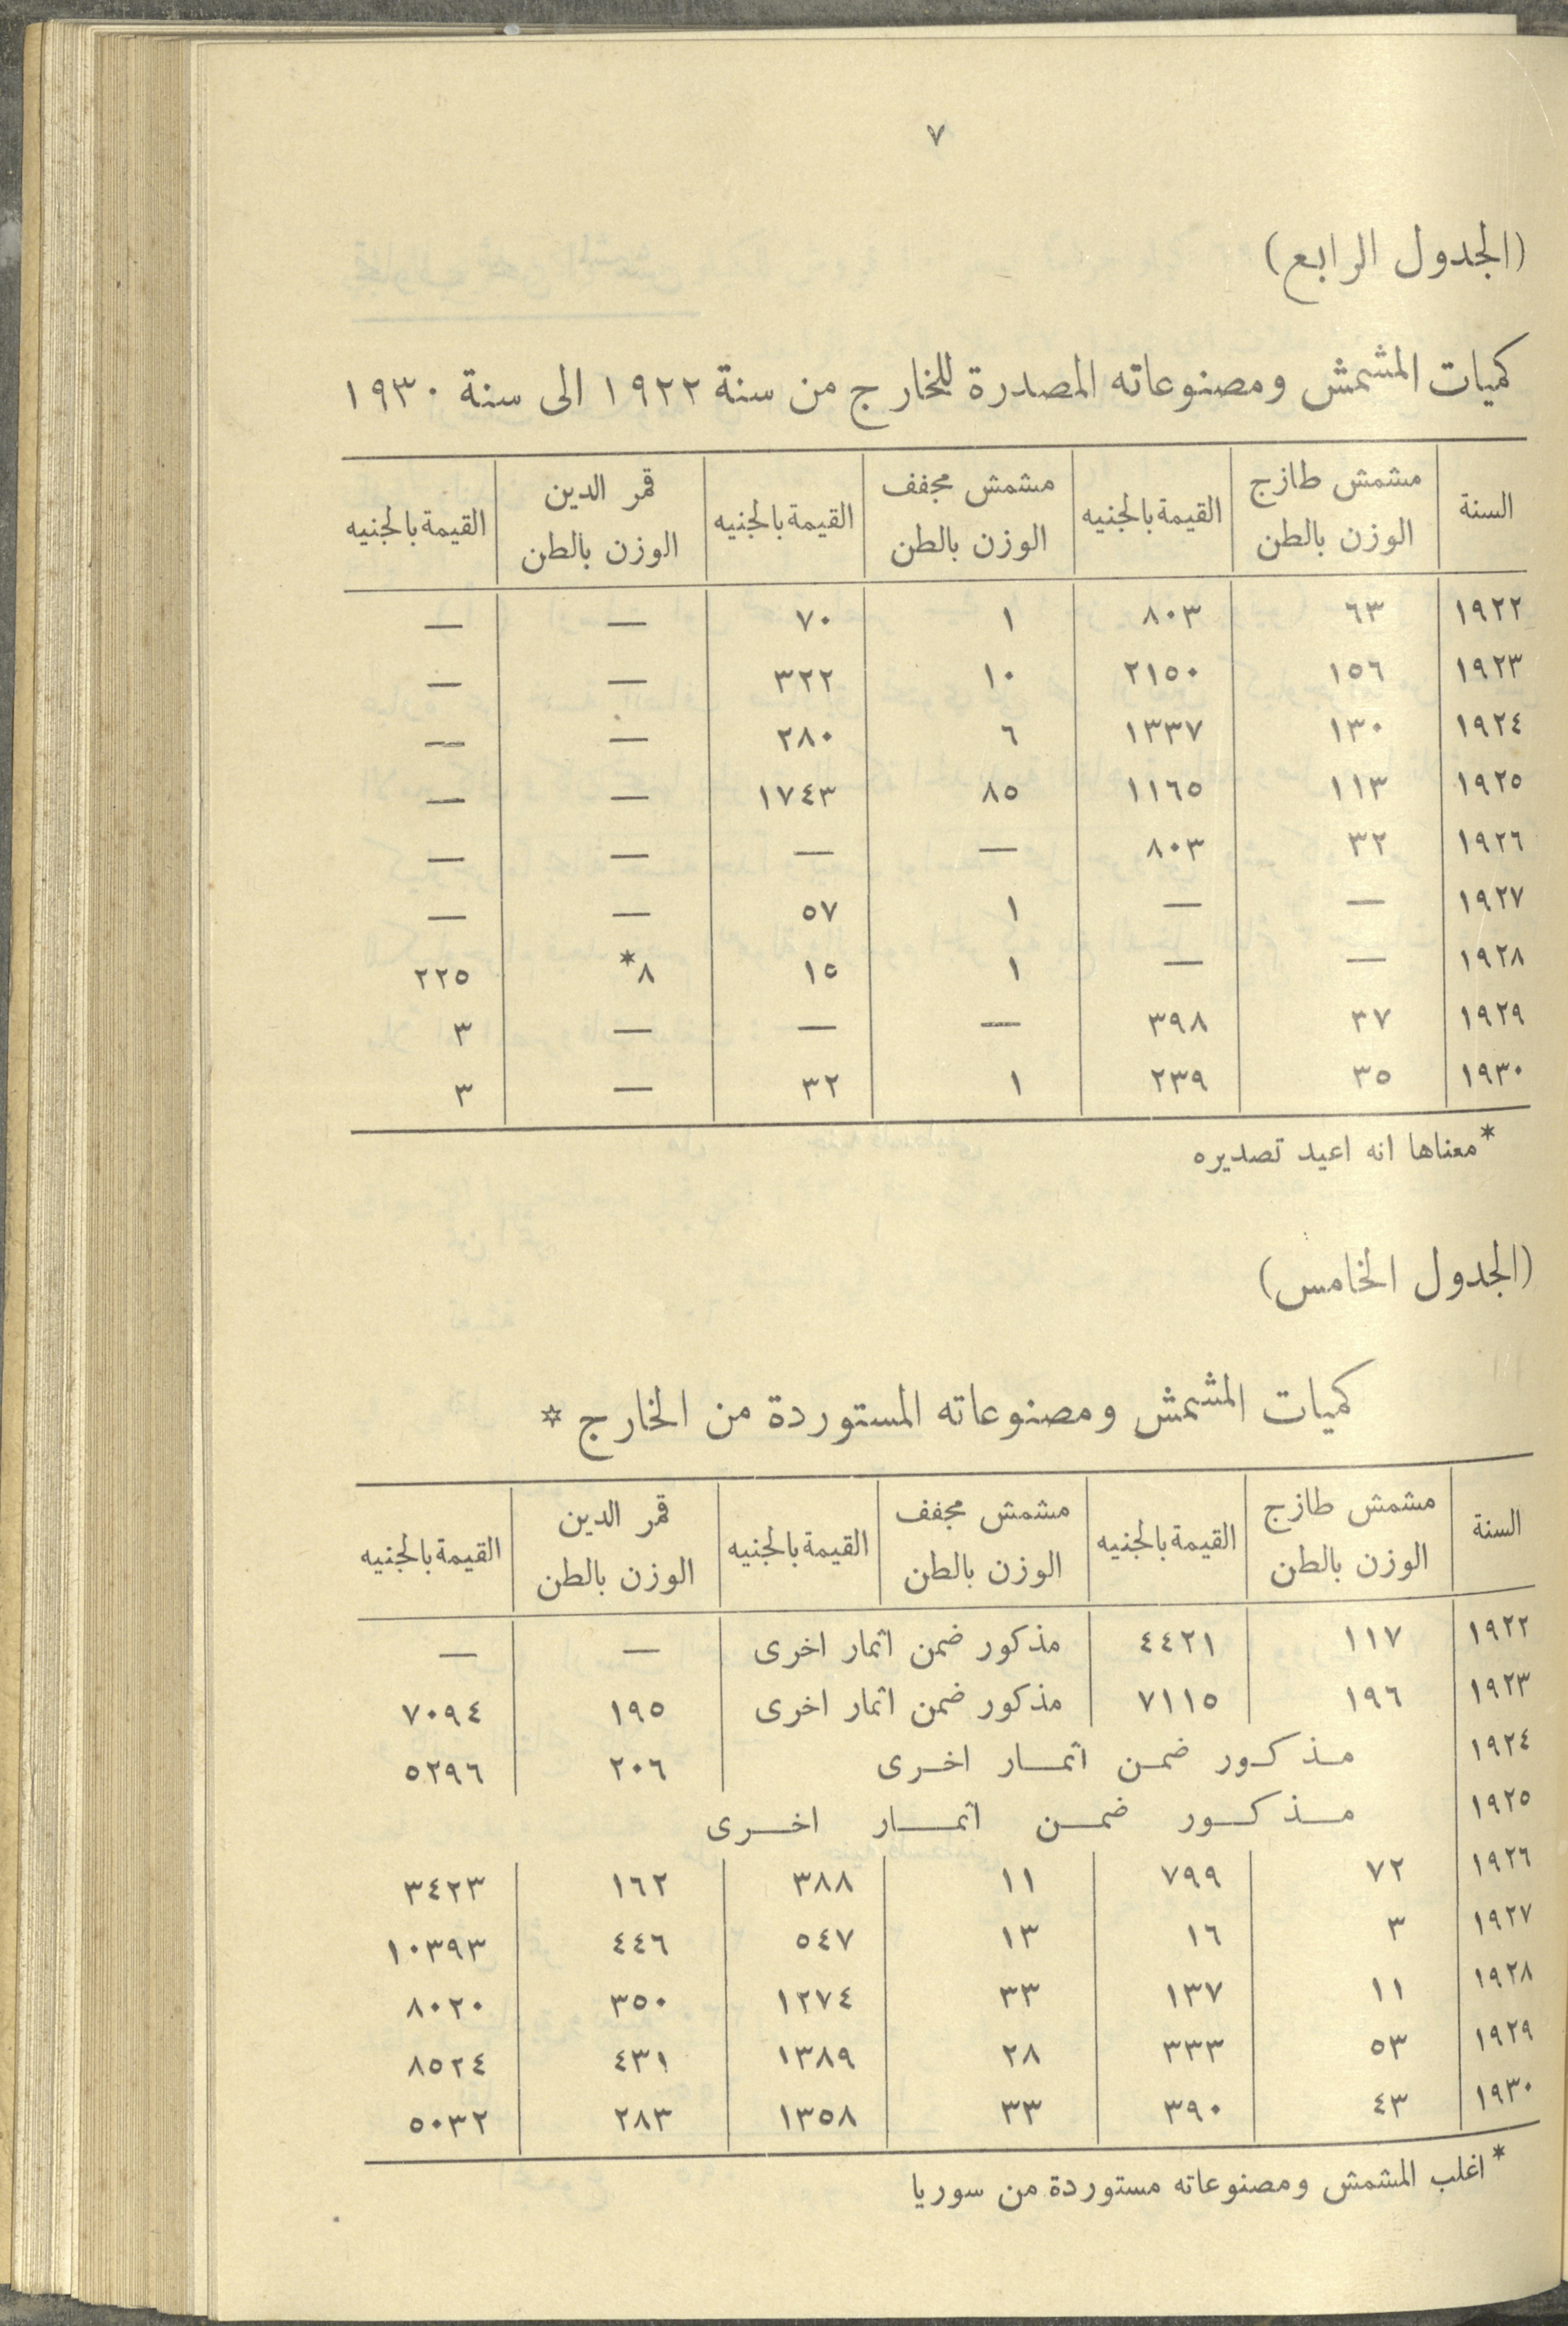 ٧
(الجدول الرابع)
كميات المشمش ومصنوعاته المصدرة للخارج من سنة ١٩٢٢ الى سنة ١٩٣٠
السنة | مشمش طازج الوزن بالطن | القيمة بالجنيه | مشمش مجفف الوزن بالطن | القيمة بالجنيه | قمر الدين الوزن بالطن | القيمة بالجنيه
١٩٢٢ | ٦٣ | ٨٠٣ | ١ | ٧٠ | — | —
١٩٢٣ | ١٥٦ | ٢١٥٠ | ١٠ | ٣٢٢ | — | —
١٩٢٤ | ١٣٠ | ١٣٣٧ | ٦ | ٢٨٠ | — | —
١٩٢٥ | ١١٣ | ١١٦٥ | ٨٥ | ١٧٤٣ | — | —
١٩٢٦ | ٣٢ | ٨٠٣ | — | — | — | —
١٩٢٧ | — | — | ١ | ٥٧ | — | —
١٩٢٨ | — | — | ١ | ١٥ | ٨* | ٢٢٥
١٩٢٩ | ٣٧ | ٣٩٨ | — | — | — | ٣
١٩٣٠ | ٣٥ | ٢٣٩ | ١ | ٣٢ | — | ٣
*معناها انه اعيد تصديره
(الجدول الخامس)
كميات المشمش ومصنوعاته المستوردة من الخارج *
السنة | مشمش طازج الوزن بالطن | القيمة بالجنيه | مشمش مجفف الوزن بالطن | القيمة بالجنيه | قمر الدين الوزن بالطن | القيمة بالجنيه
١٩٢٢ | ١١٧ | ٤٤٢١ | مذكور ضمن اثمار اخرى | — | —
١٩٢٣ | ١٩٦ | ٧١١٥ | مذكور ضمن اثمار اخرى | ١٩٥ | ٧٠٩٤
١٩٢٤ | مذكور ضمن اثمار اخرى | ٢٠٦ | ٥٢٩٦
١٩٢٥ | مذكور ضمن اثمار اخرى
١٩٢٦ | ٧٢ | ٧٩٩ | ١١ | ٣٨٨ | ١٦٢ | ٣٤٢٣
١٩٢٧ | ٣ | ١٦ | ١٣ | ٥٤٧ | ٤٤٦ | ١٠٣٩٣
١٩٢٨ | ١١ | ١٣٧ | ٣٣ | ١٢٧٤ | ٣٥٠ | ٨٠٢٠
١٩٢٩ | ٥٣ | ٣٣٣ | ٢٨ | ١٣٨٩ | ٤٣١ | ٨٥٢٤
١٩٣٠ | ٤٣ | ٣٩٠ | ٣٣ | ١٣٥٨ | ٢٨٣ | ٥٠٣٢
*اغلب المشمش ومصنوعاته مستوردة من سوريا